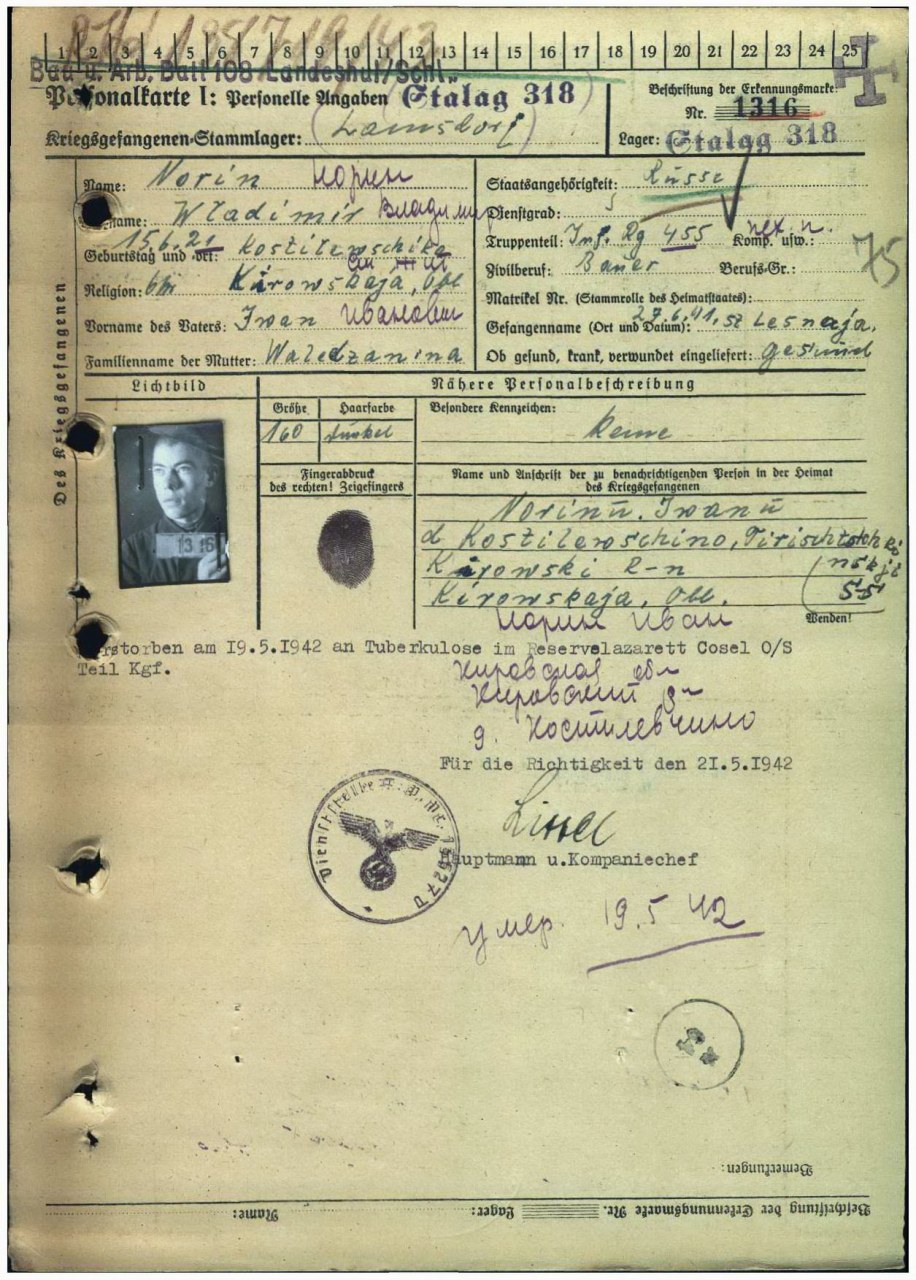 1 2 3 4 5 6 7 8 9 10 11 12 13 14 15 16 17 18 19 20 21 22 23 24 25
Bau u. Arb. Batl 108 Landeshut/Schl.
Personalkarte I: Personelle Angaben Stalag 318
Beschriftung der Erkennungsmarke:
Nr. 1316
Kriegsgefangenen-Stammlager: (Lamsdorf)
Lager: Stalag 318
Des Kriegsgefangenen
Name: Norin Норин
Vorname: Wladimir Владимир
Geburtstag und -ort: 15.6.21 Kostilewschika
Religion: Kirowskaja, Obl
Vorname des Vaters: Iwan Иванович
Familienname der Mutter: Waledzanina
Staatsangehörigkeit: Russe
Dienstgrad: S
Truppenteil: Inf. Rg 455 Komp. usw.:
Zivilberuf: Bauer Berufs-Gr.:
75
Matrikel Nr. (Stammrolle des Heimatstaates):
Gefangenname (Ort und Datum): 27.6.41, st Lesnaja.
Ob gesund, krank, verwundet eingeliefert: gesund
Lichtbild
Nähere Personalbeschreibung
Größe Haarfarbe
160 dunkel
Besondere Kennzeichen:
Keine
1316
Fingerabdruck
des rechten! Zeigefingers
Name und Anschrift der zu benachrichtigenden Person in der Heimat
des Kriegsgefangenen
Norin Iwan
d Kostilewschino,
Kirowski R-n
Kirowskaja, Obl.
Wenden!
Норин Иван
Verstorben am 19.5.1942 an Tuberkulose im Reservelazarett Cosel O/S
Teil Kgf.
Кировская обл
Кировский р-
д. Костилевчино
Für die Richtigkeit den 21.5.1942
Hauptmann u.Kompaniechef
Dienststelle
умер. 19.5 42
Bemerkungen:
Beschriftung der Erkennungsmarke Nr. Lager: Name: